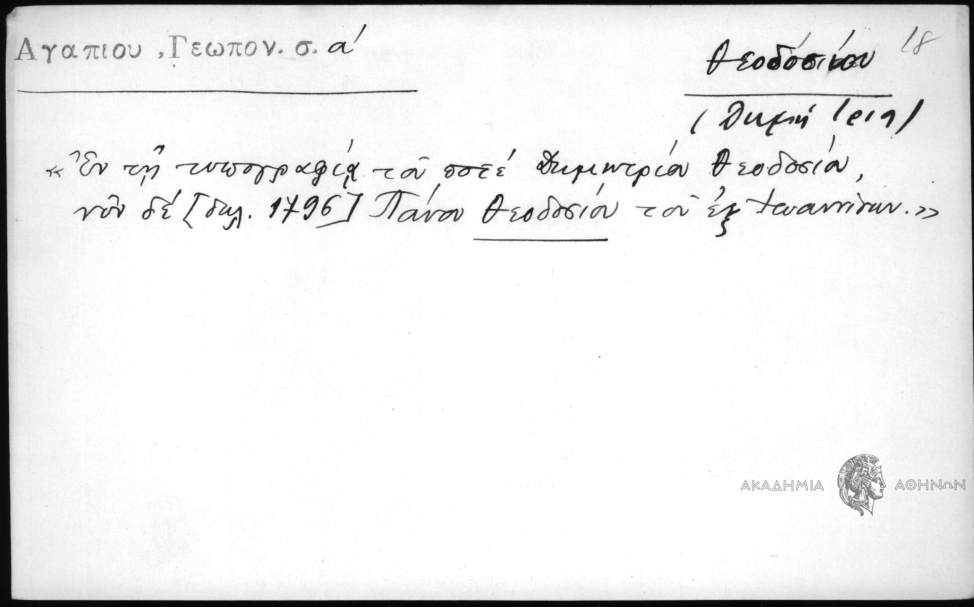 Αγαπιου , Γεωπον. σ. α΄
Θεοδόσιου 18
«Ἐν τῇ τυπογραφίᾳ τοῦ ποτέ Δημητρίου Θεοδοσίου,
νῦν δέ [δηλ. 1796] Πάνου Θεοδοσίου τοῦ ἐξ Ἰωαννίνων.»
ΑΚΑΔΗΜΙΑ ΑΘΗΝΩΝ